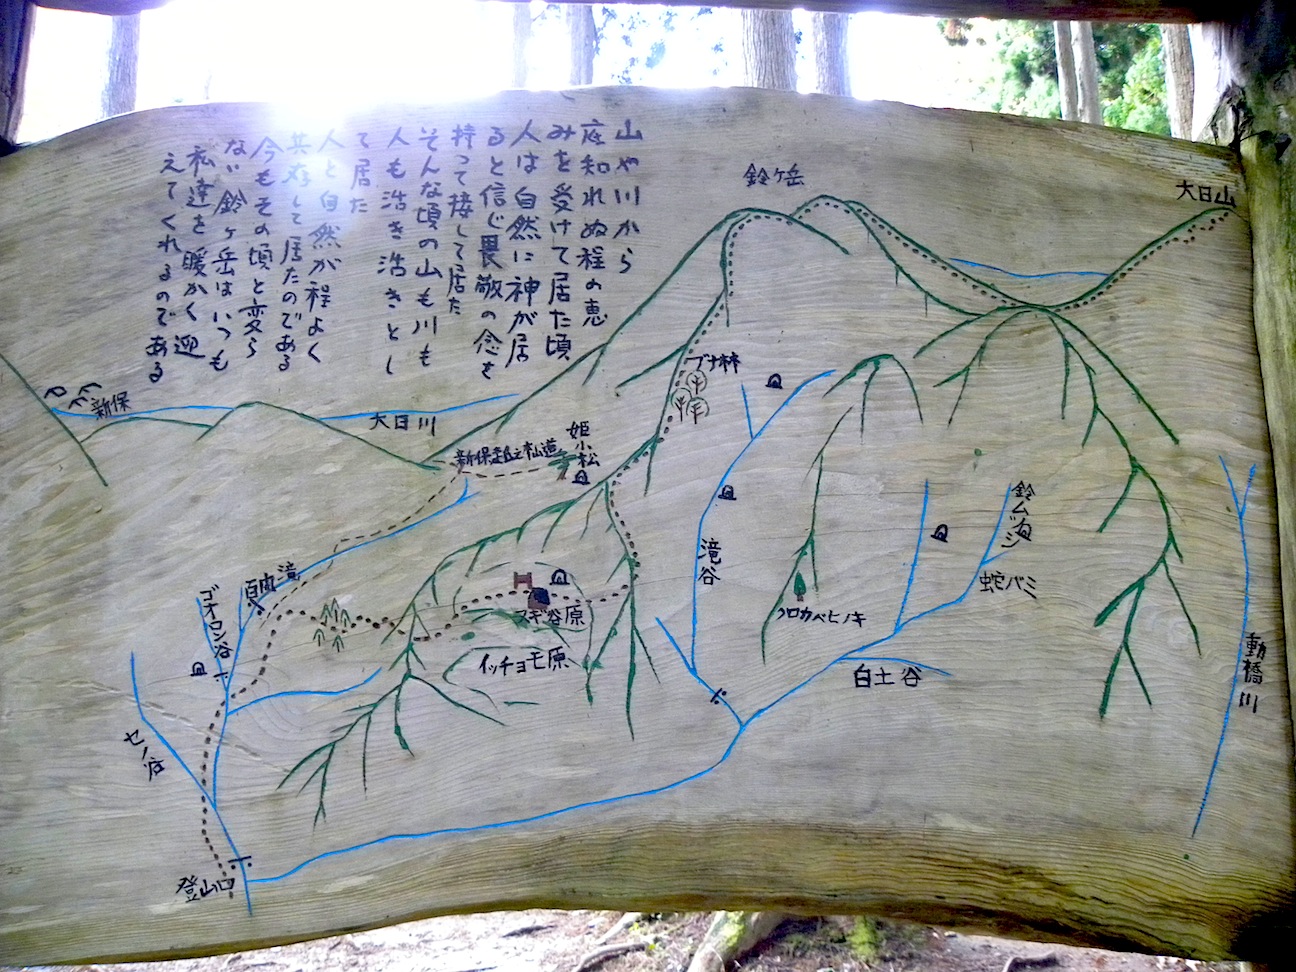 山や川から
底知れぬ程の恵
みを受けて居た頃
人は自然に神が居
ると信じ畏敬の念を
持って接して居た
そんな頃の山も川も
人も浩き浩きとし
て居た
人と自然が程よく
共存して居たのである
今もその頃と変ら
ない鈴ヶ岳はいつも
私達を暖かく迎
えてくれるのである
鈴ヶ岳
大日山
ブナ林
新保
大日川
姫小松
滝谷
鈴ムシ
蛇バミ
クロカベヒノキ
スギ谷原
イッチョモ原
白土谷
動橋川
ゴオロン谷
登山口